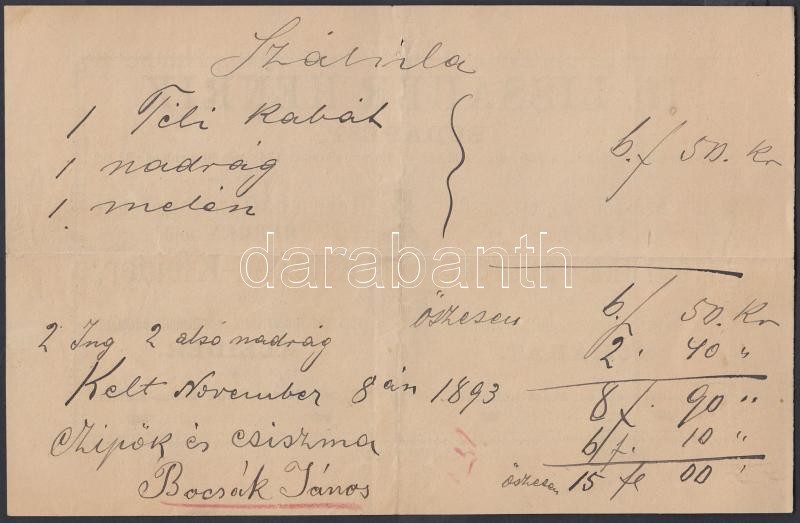 Számla
1 Téli kabát
1 nadrág
1. melén
6. f 50. Kr
darabanth
öszesen 6. f 50. Kr
2 Ing 2 alsó nadrág 2. 40 "
Kelt November 8 án 1893 8 f. 90 "
Czipök és csiszma 6 f. 10 "
Bocsák János öszesen 15 f 00